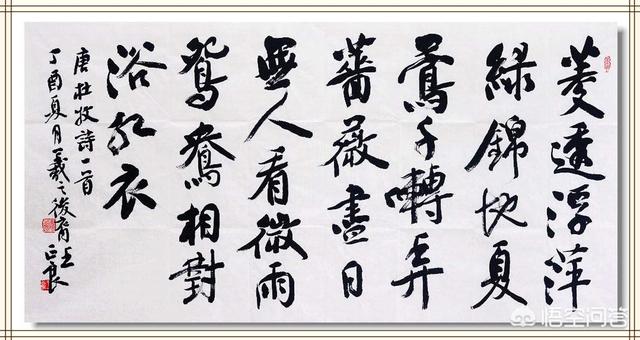 菱透浮萍
綠錦池夏
鶯千囀弄
薔薇盡日
無人看微雨
鴛鴦相對
浴紅衣
唐杜牧詩一首
丁酉夏月羲之後裔王正良
悟空问答